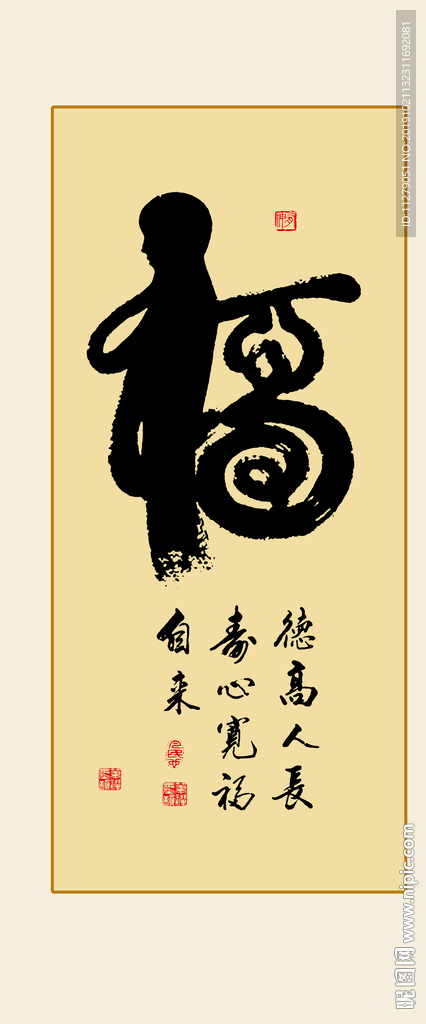 福
德高人長
壽心寬福
自来
ID:11279051 NO:20191021132311692081
昵图网 www.nipic.com